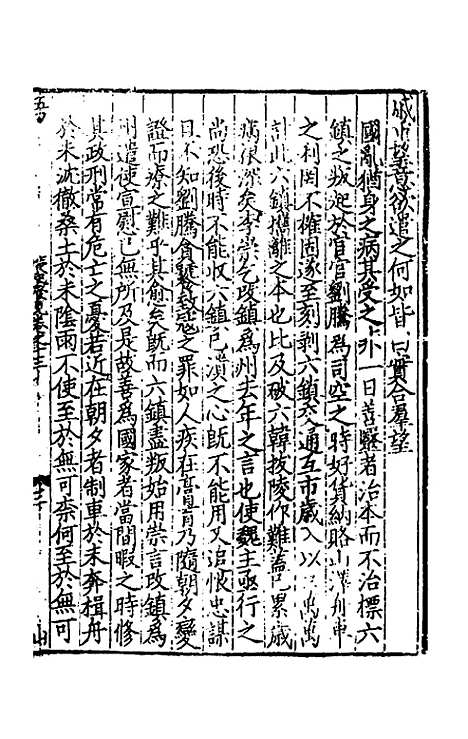 戚中望意欲遣之何如皆曰實合羣望
國亂猶身之病其受之非一日善醫者治本而不治標六
鎮之叛起於宦官劉騰為司空之時好貨納賂山澤舟車
之利罔不榷固遂至刻剥六鎮交通互市歲入以巨萬萬
計此六鎮攜離之本也比及破六韓拔陵作難蓋已累歲
病根深矣李崇乞改鎮為州去年之言也使魏主亟行之
尚恐後時不能收六鎮已潰之心旣不能用又追恨忠謀
曰不知劉騰貪饕致寇之罪如人疾在膏肓乃隨朝夕變
證而療之難乎其愈矣旣而六鎮盡叛始用崇言改鎮為
州遣使宣慰已無所及是故善為國家者當閒暇之時修
其政刑常有危亡之憂若近在朝夕者制車於未奔楫舟
於未沈撤桑土於未陰雨不使至於無可柰何至於無可